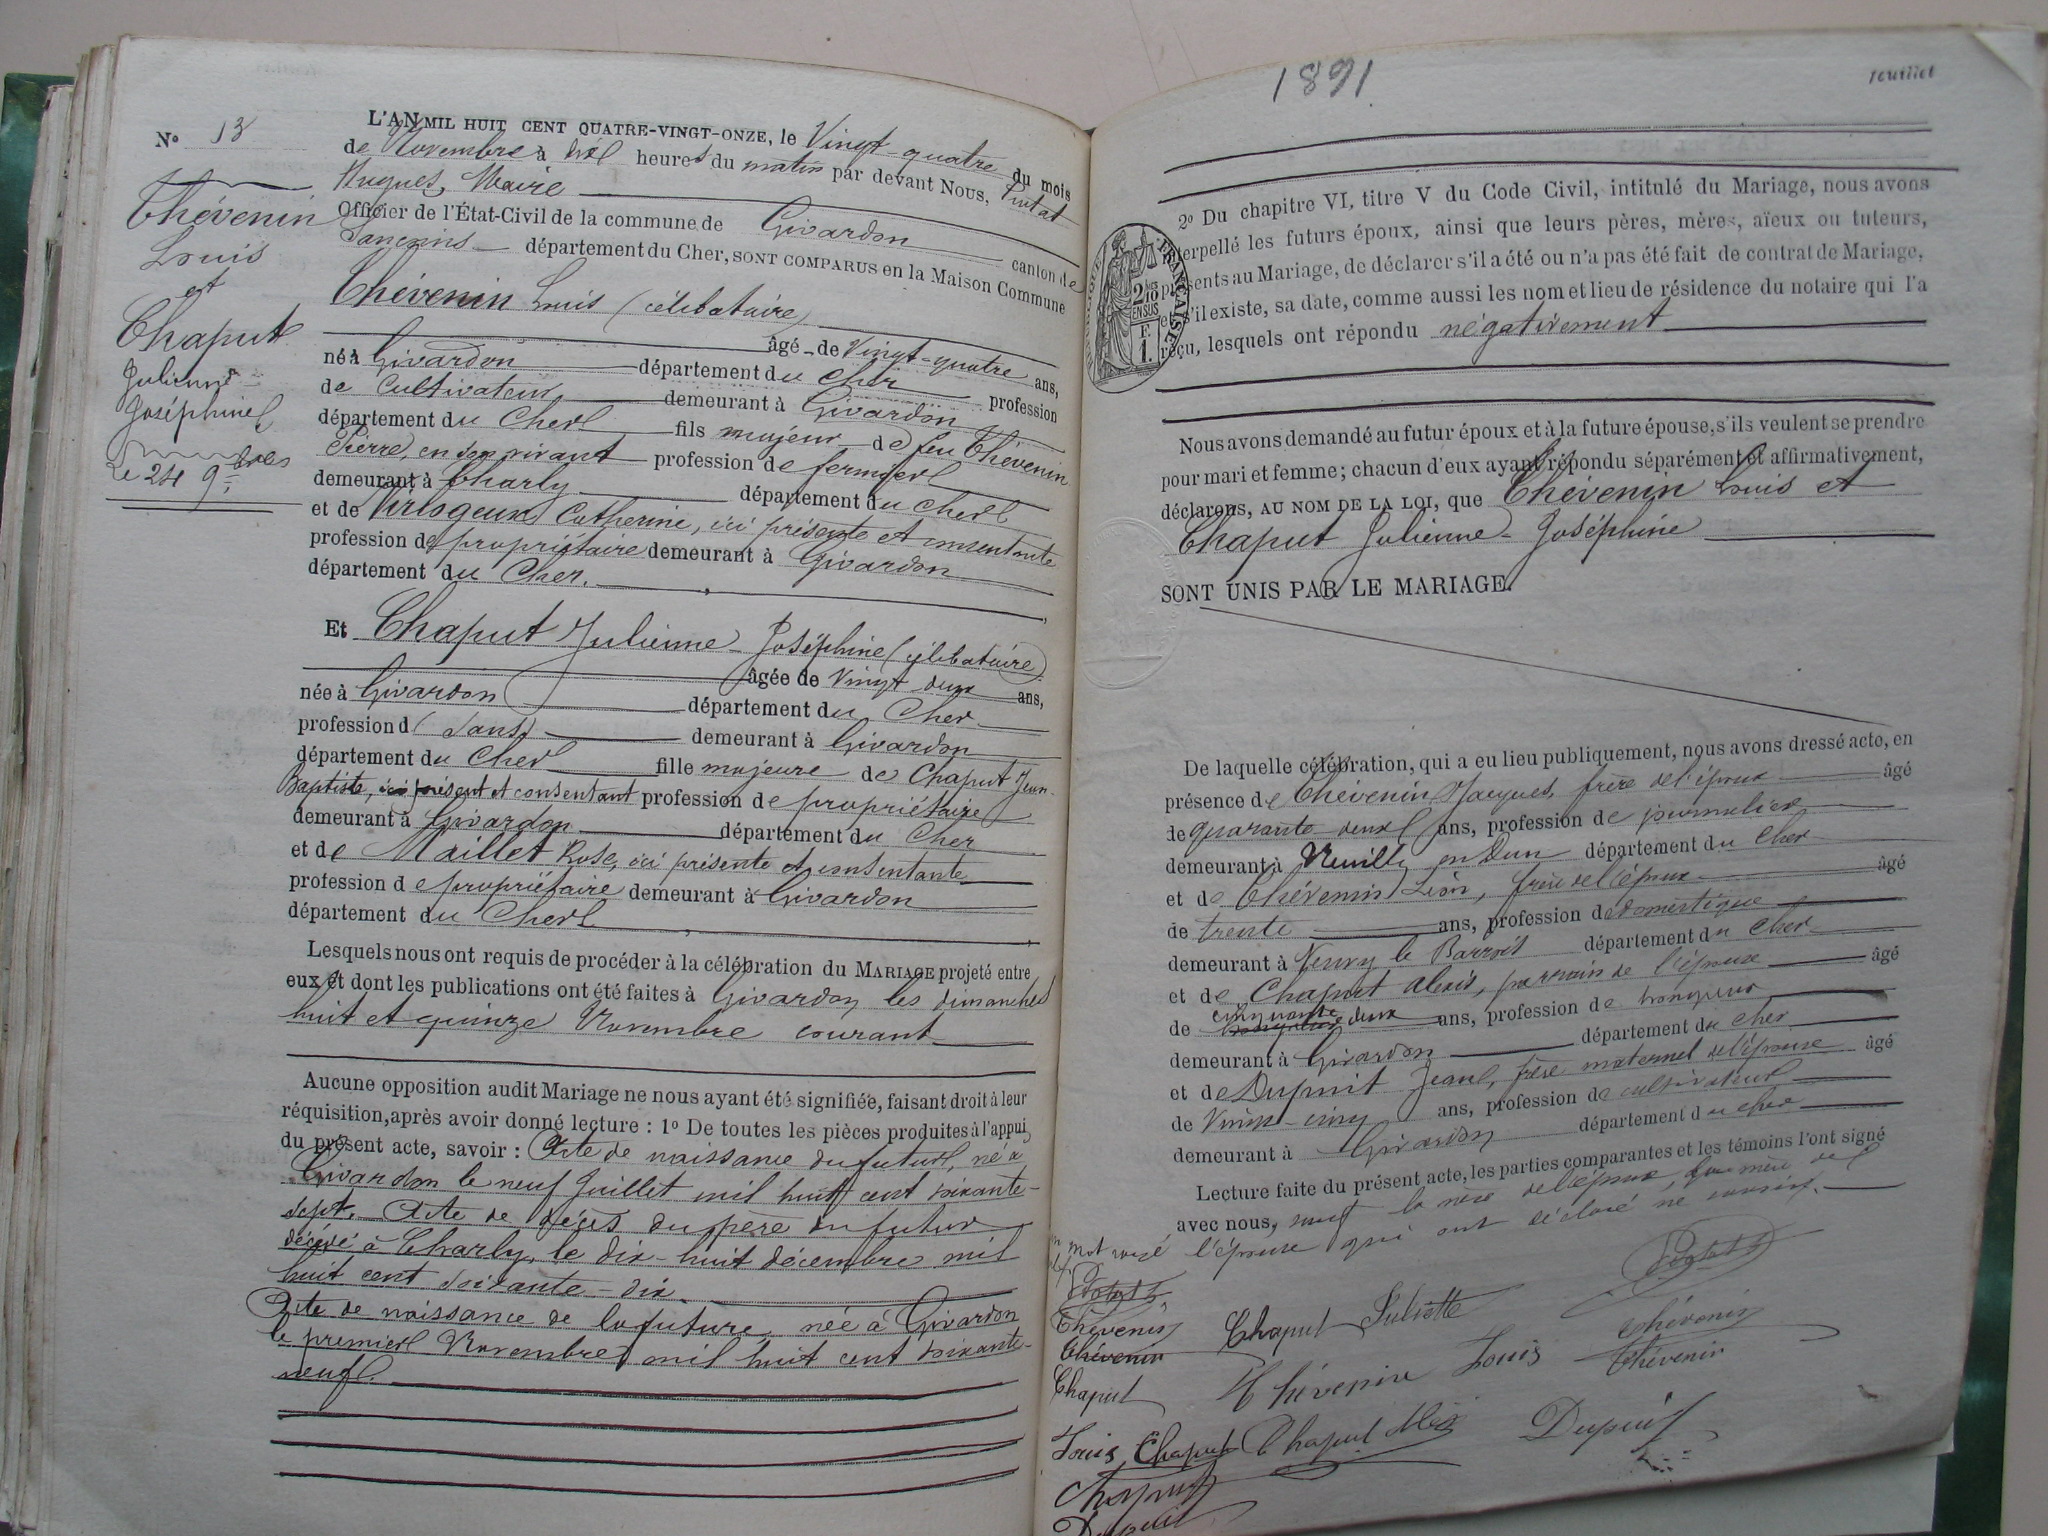 N° 13
Thévenin
Louis
et
Chaput
Julienne
Joséphine
Le 24 9bre
L'AN MIL HUIT CENT QUATRE-VINGT-ONZE, le Vingt-quatre du mois
de Novembre à dix heures du matin par devant Nous, Putat
Hugues, Maire
Officier de l'État-Civil de la commune de Givardon canton de
Sancoins département du Cher, SONT COMPARUS en la Maison Commune
Thévenin Louis (célibataire)
âgé de Vingt-quatre ans,
né à Givardon département du Cher profession
de Cultivateur demeurant à Givardon
département du Cher fils majeur de feu Thévenin
Pierre, en son vivant profession de fermier
demeurant à Charly département du Cher
et de Virlogeux Catherine, ici présente et consentante
profession de propriétaire demeurant à Givardon
département du Cher.
Et Chaput Julienne-Joséphine (célibataire)
âgée de Vingt deux ans,
née à Givardon département du Cher
profession d (sans) demeurant à Givardon
département du Cher fille majeure de Chaput Jean-
Baptiste, ici présent et consentant profession de propriétaire
demeurant à Givardon département du Cher
et de Maillet Rose, ici présente et consentante
profession de propriétaire demeurant à Givardon
département du Cher
Lesquels nous ont requis de procéder à la célébration du MARIAGE projeté entre
eux et dont les publications ont été faites à Givardon, les dimanches
huit et quinze Novembre courant
Aucune opposition audit Mariage ne nous ayant été signifiée, faisant droit à leur
réquisition, après avoir donné lecture : 1° De toutes les pièces produites à l'appui
du présent acte, savoir : Acte de naissance du futur, né à
Givardon le neuf Juillet mil huit cent soixante-
sept. Acte de décès du père du futur
décédé à Charly, le dix-huit décembre mil
huit cent soixante-dix.
Acte de naissance de la future, née à Givardon
le premier Novembre mil huit cent soixante-
neuf.
1891
feuillet
2° Du chapitre VI, titre V du Code Civil, intitulé du Mariage, nous avons
interpellé les futurs époux, ainsi que leurs pères, mères, aïeux ou tuteurs,
présents au Mariage, de déclarer s'il a été ou n'a pas été fait de contrat de Mariage,
et s'il existe, sa date, comme aussi les nom et lieu de résidence du notaire qui l'a
reçu, lesquels ont répondu négativement
FRANÇAISE
2/10
EN SUS
F.
1.
Nous avons demandé au futur époux et à la future épouse, s'ils veulent se prendre
pour mari et femme; chacun d'eux ayant répondu séparément et affirmativement,
déclarons, AU NOM DE LA LOI, que Thévenin Louis et
Chaput Julienne-Joséphine
SONT UNIS PAR LE MARIAGE.
De laquelle célébration, qui a eu lieu publiquement, nous avons dressé acte, en
présence de Thévenin Jacques, frère de l'époux âgé
de quarante-deux ans, profession de journalier
demeurant à Vereuilly en Dun département du Cher
et de Thévenin Léon, frère de l'époux âgé
de trente ans, profession de domestique
demeurant à Neuvy le Barrois département du Cher
et de Chaput Alexis, parrain de l'épouse âgé
de cinquante deux ans, profession de
demeurant à Givardon département du Cher
et de Dupuit Jean, frère maternel de l'épouse âgé
de Vingt-cinq ans, profession de cultivateur
demeurant à Givardon département du Cher
Lecture faite du présent acte, les parties comparantes et les témoins l'ont signé
avec nous, sauf la mère de l'époux, la mère de
l'épouse qui ont déclaré ne savoir.
un mot rayé
Putat
Putat
Thévenin
Thévenin
Chaput
Chaput Juliette
Thévenin Louis
Thévenin
Thévenin
Louis Chaput
Chaput Alexis
Dupuit
Chaput
Dupuit